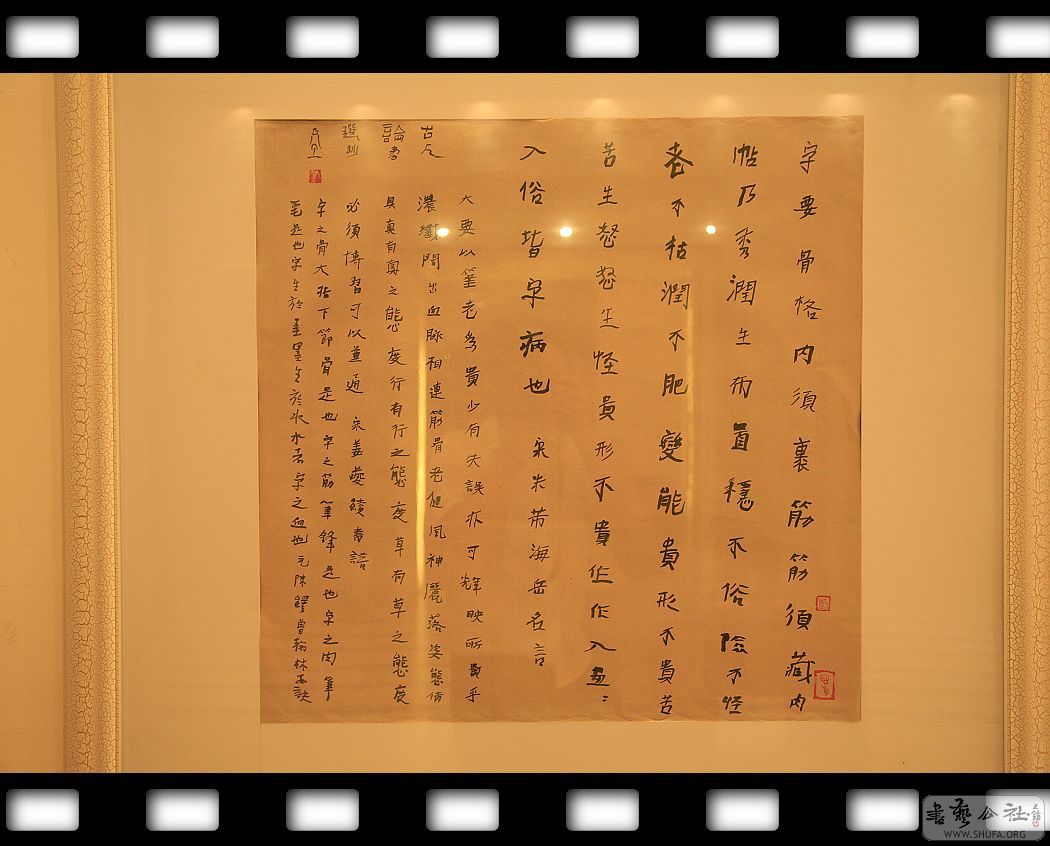 字要骨格内須裹筋筋須藏肉
帖乃秀潤生布置穩不俗險不怪
老不枯潤不肥變能貴形不貴苦
苦生怒怒生怪貴形不貴作作入畫〻
入俗皆字病也 宋米芾海岳名言
大要以筆老爲貴少有失誤亦可輝映所貴乎
古人
濃纖間出血脈相連筋骨老健風神灑落姿態備
論書
具真有真之態度行有行之態度草有草之態度
選
必須博習可以兼通 宋姜夔續書譜
字之骨大指下節骨是也字之筋筆鋒是也字之肉筆
毫是也字生於墨墨生於水水者字之血也元陳繹曾翰林要訣
書藝公社
WWW.SHUFA.ORG